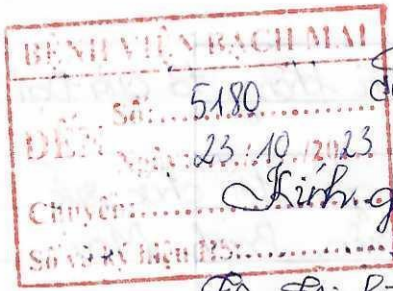 BỆNH VIỆN BẠCH MAI
ĐẾN
Số: 5180
Ngày: 23/10/2023
Chuyển:
Kính g
Số và ký hiệu HS: